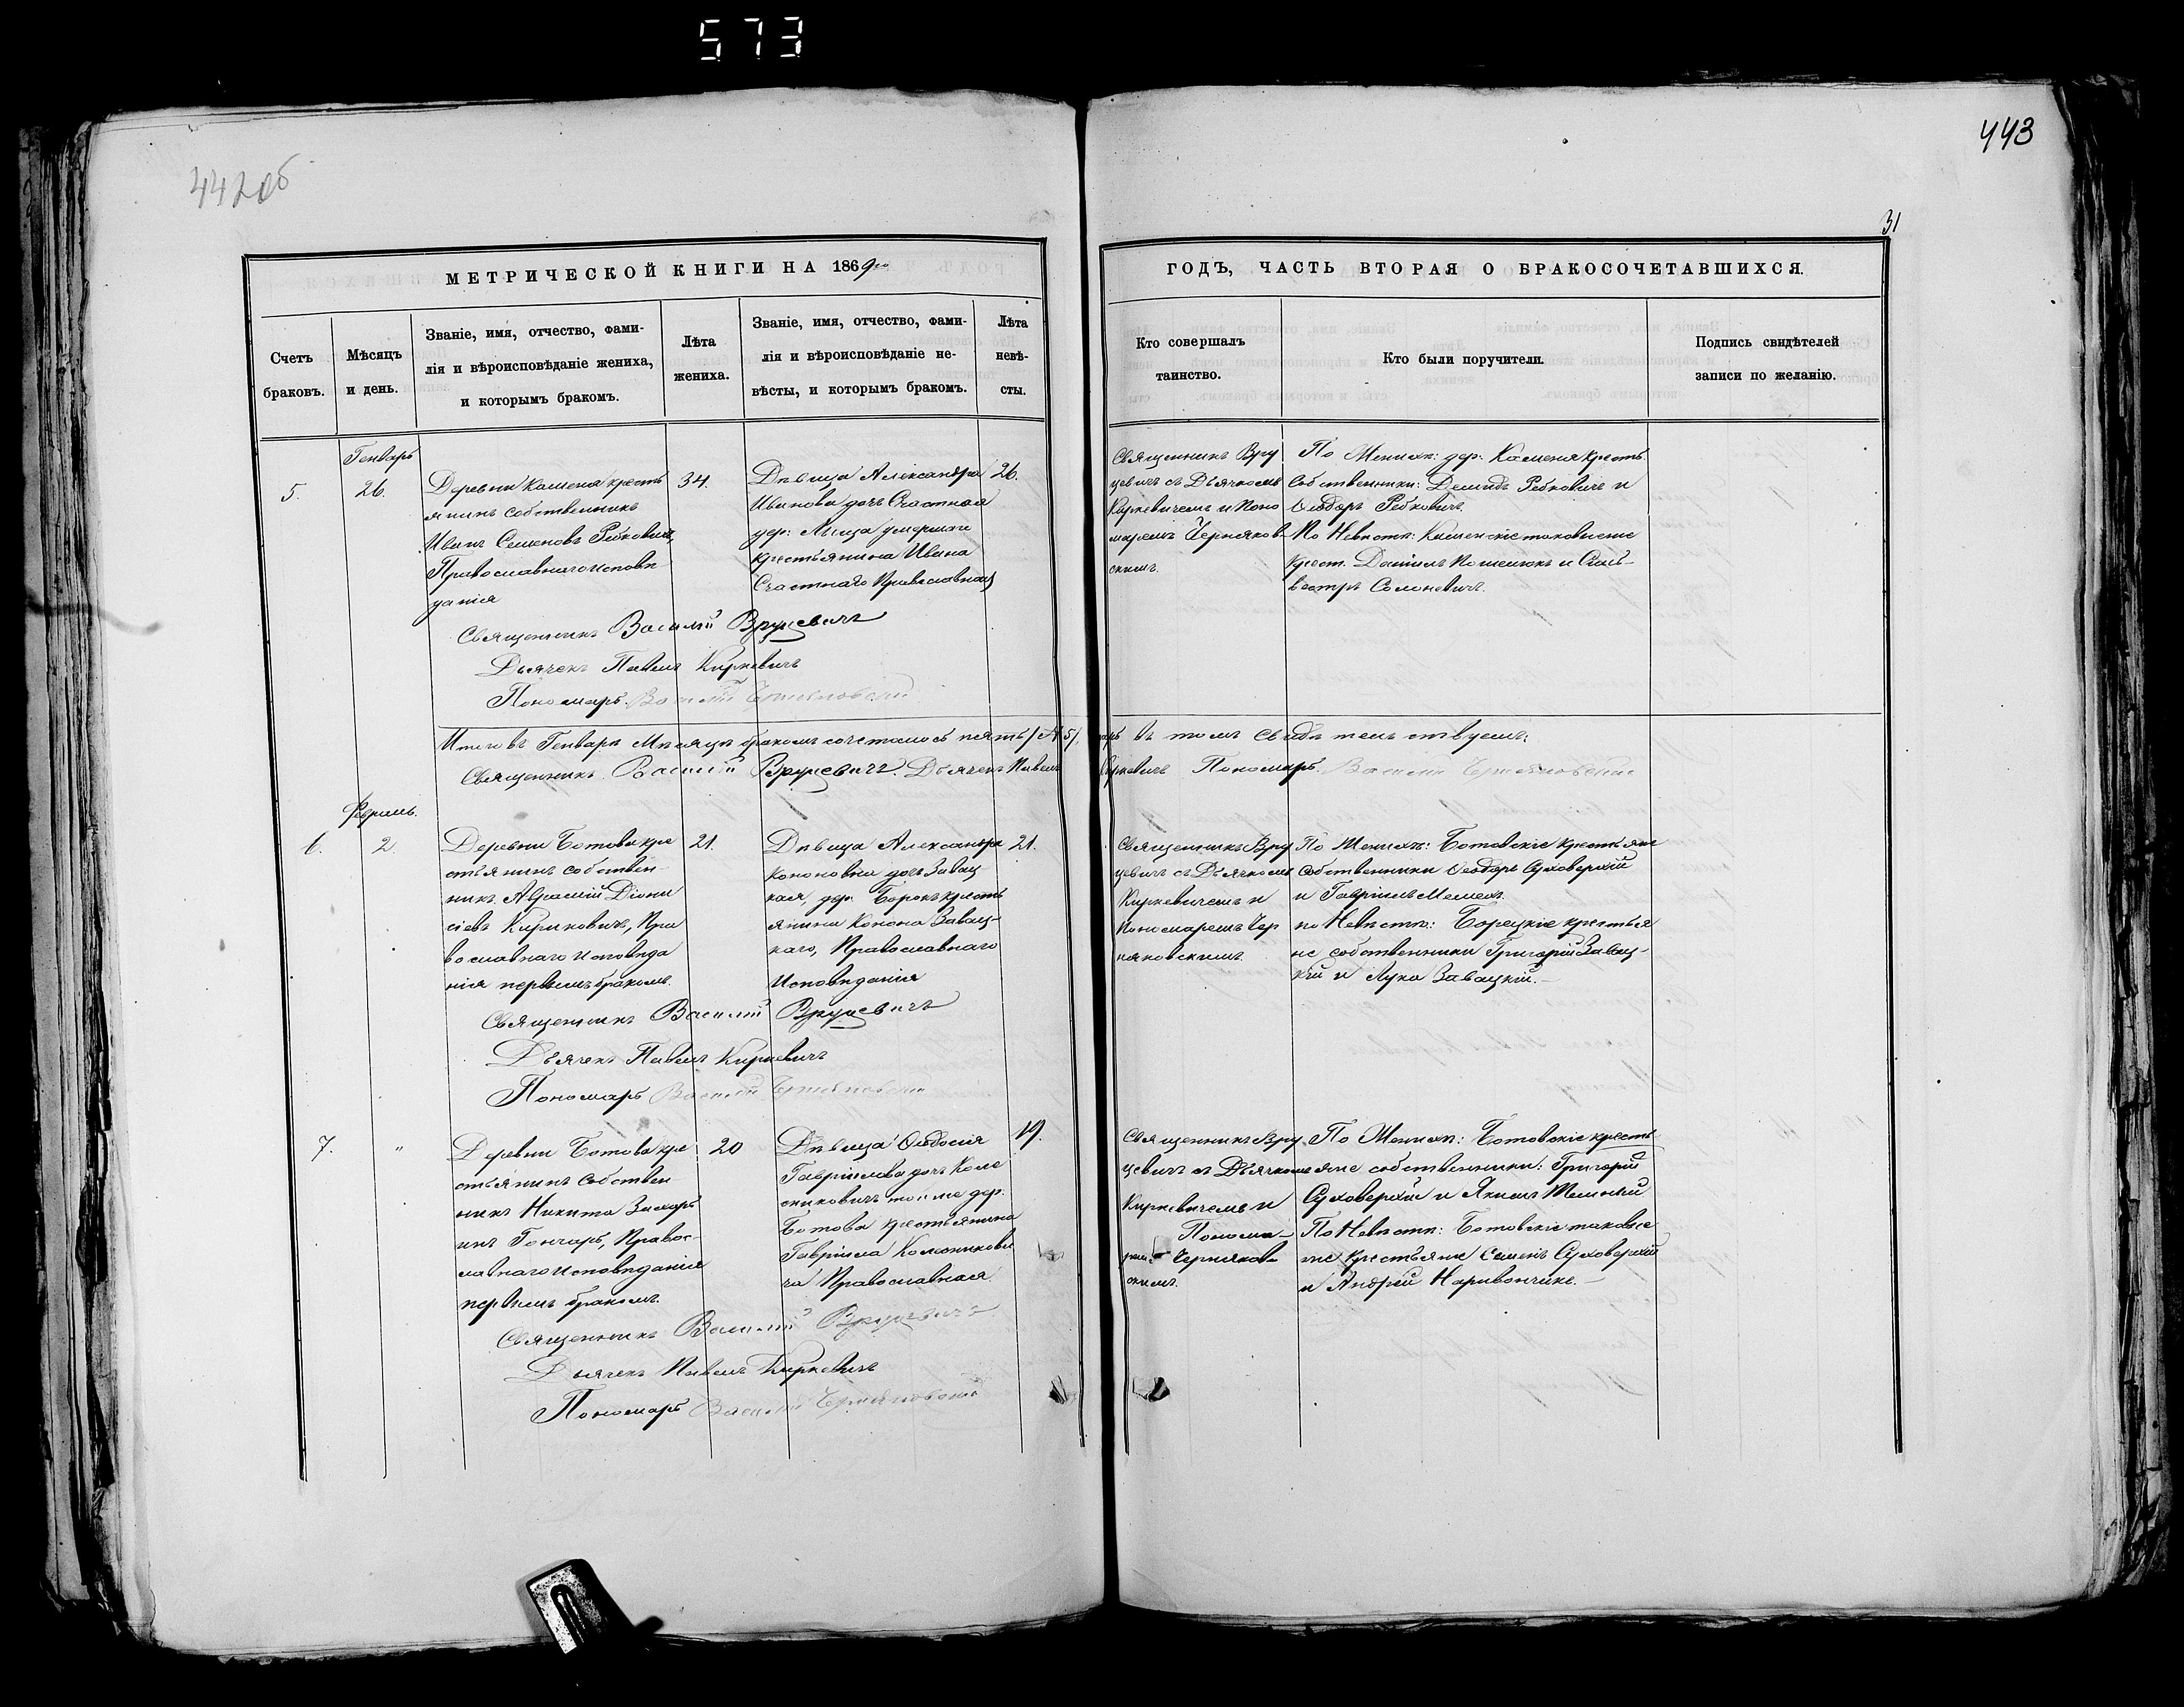 573
442об
443
31
МЕТРИЧЕСКОЙ КНИГИ НА 1869
ГОДЪ, ЧАСТЬ ВТОРАЯ О БРАКОСОЧЕТАВШИХСЯ.
Счетъ браковъ.
Мѣсяцъ и день.
Званіе, имя, отчество, фами-
лія и вѣроисповѣданіе жениха,
и которымъ бракомъ.
Лѣта жениха.
Званіе, имя, отчество, фами-
лія и вѣроисповѣданіе не-
вѣсты, и которымъ бракомъ.
Лѣта невѣ-
сты.
Кто совершалъ
таинство.
Кто были поручители.
Подпись свидѣтелей
записи по желанію.
5.
Генварь
26.
Деревни Каменя кресть
янинъ собственникъ
Иванъ Семеновъ Ребковичъ,
Православнаго исповѣ
данія
34.
Дѣвица Александра
Иванова дочь Счастная
дер: умершаго
крестьянина Ивана
Счастнаго Православная
26.
Священникъ Вру
цевичъ съ Дьячкомъ
Киркевичемъ и Поно
маремъ Черняков-
скимъ.
По Жених: дер: Каменя кресть.
собственники: Демидъ Ребковичъ и
Ѳеодоръ Ребковичъ.
По Невѣстѣ: Каменскіе таковыеже
крест. Даніилъ и Силь-
вестръ Солоневичъ.
Священникъ Василій Вруцевичъ
Дьячекъ Павелъ Киркевичъ
Пономарь Василій Черняковскій
Итого въ Генварѣ Мѣсяцѣ бракомъ сочеталось пять (№5) паръ въ томъ свидѣтельствуемъ:
Священникъ Василій Вруцевичъ. Дьячекъ Павелъ Киркевичъ Пономарь Василій Черняковскій
6.
Февраль.
2.
Деревни Ботова кре
стьянинъ собствен-
никъ Авраамій Діони
сіевъ Кириковичъ, Пра
вославнаго исповѣда
нія первымъ бракомъ.
21.
Дѣвица Александра
Кононовна дочь Завац
кая, дер: Борокъ кресть
янина Конона Завац-
каго, Православнаго
Исповѣданія
21.
Священникъ Вру
цевичъ съ Дьячкомъ
Киркевичемъ и
Пономаремъ Чер
няковскимъ.
По Женихѣ: Ботовскіе крестьяне
собственники Ѳеодоръ Суховерхій
и Гавріилъ
по Невѣстѣ: Борецкіе крестья
не собственники Григорій Завац-
кій и Лука Завацкій.
Священникъ Василій Вруцевичъ
Дьячекъ Павелъ Киркевичъ
Пономарь Василій Черняковскій
7.
"
Деревни Ботова кре
стьянинъ собствен
никъ Никита Захарь
инъ Гончаръ, Правос-
лавнаго исповѣданія
первымъ бракомъ.
20
Дѣвица Ѳеодосія
Гавріилова дочь Коле
сниковичъ той же дер.
Ботова крестьянина
Гавріила Колесникови
ча Православная
19.
Священникъ Вру
цевичъ съ Дьячкомъ
Киркевичемъ и
Понома-
ремъ Черняков-
скимъ.
По Женихѣ: Ботовскіе кресть
яне собственники: Григорій
Суховерхій и Якимъ
По Невѣстѣ: Ботовскіе таковые
же крестьяне Семенъ Суховерхій
и Андрей
Священникъ Василій Вруцевичъ
Дьячекъ Павелъ Киркевичъ
Пономарь Василій Черняковскій